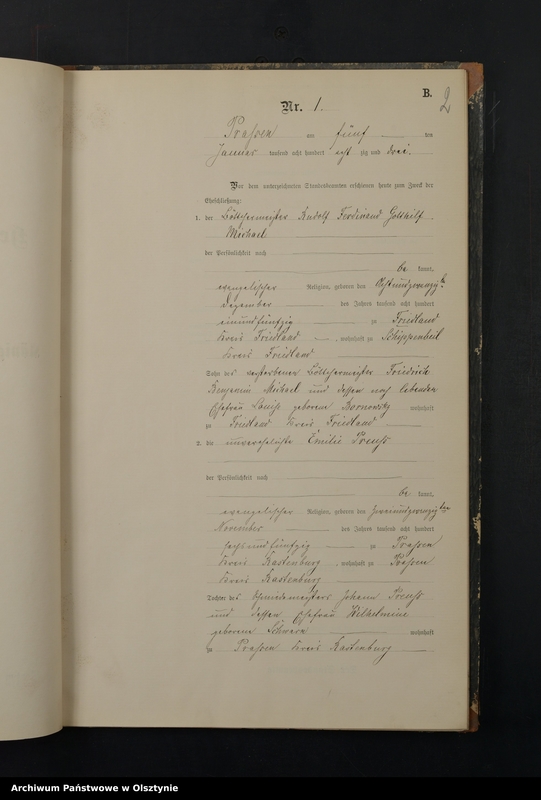 B.
2
Nr. 1.
Prassen am fünf ten
Januar tausend acht hundert acht zig und drei.
Vor dem unterzeichneten Standesbeamten erschienen heute zum Zweck der
Eheschließung:
1. der Böttchermeister Rudolf Ferdinand Gotthilf
Michael
der Persönlichkeit nach
be kannt,
evangelischer Religion, geboren den Achtundzwanzigsten
Dezember des Jahres tausend acht hundert
einundfünfzig zu Friedland
Kreis Friedland, wohnhaft zu Schippenbeil
Kreis Friedland
Sohn des verstorbenen Böttchermeister Friedrich
Benjamin Michael und dessen noch lebenden
Ehefrau Louise geborene wohnhaft
zu Friedland Kreis Friedland
2. die unverehelichte Emilie Preuß
der Persönlichkeit nach
be kannt,
evangelischer Religion, geboren den zweiundzwanzigsten
November des Jahres tausend acht hundert
sechsundfünfzig zu Prassen
Kreis Rastenburg, wohnhaft zu Prassen
Kreis Rastenburg
Tochter des Schmiedemeisters Johann Preuß
und dessen Ehefrau Wilhelmine
geborene wohnhaft
zu Prassen Kreis Rastenburg
Archiwum Państwowe w Olsztynie